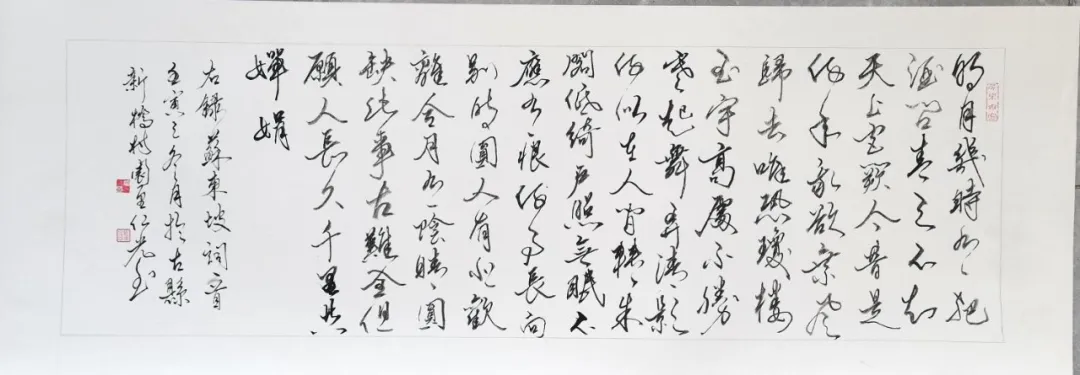 明月幾時有把
酒問青天不知
天上宮闕今昔是
何年我欲乘風
歸去唯恐瓊樓
玉宇高處不勝
寒起舞弄清影
何似在人間轉朱
閣低綺戶照無眠不
應有恨何事長向
別時圓人有悲歡
離合月有陰晴圓
缺此事古難全但
願人長久千里共
嬋娟
右錄蘇東坡詞一首
壬寅之冬月於古縣
新橋桃園